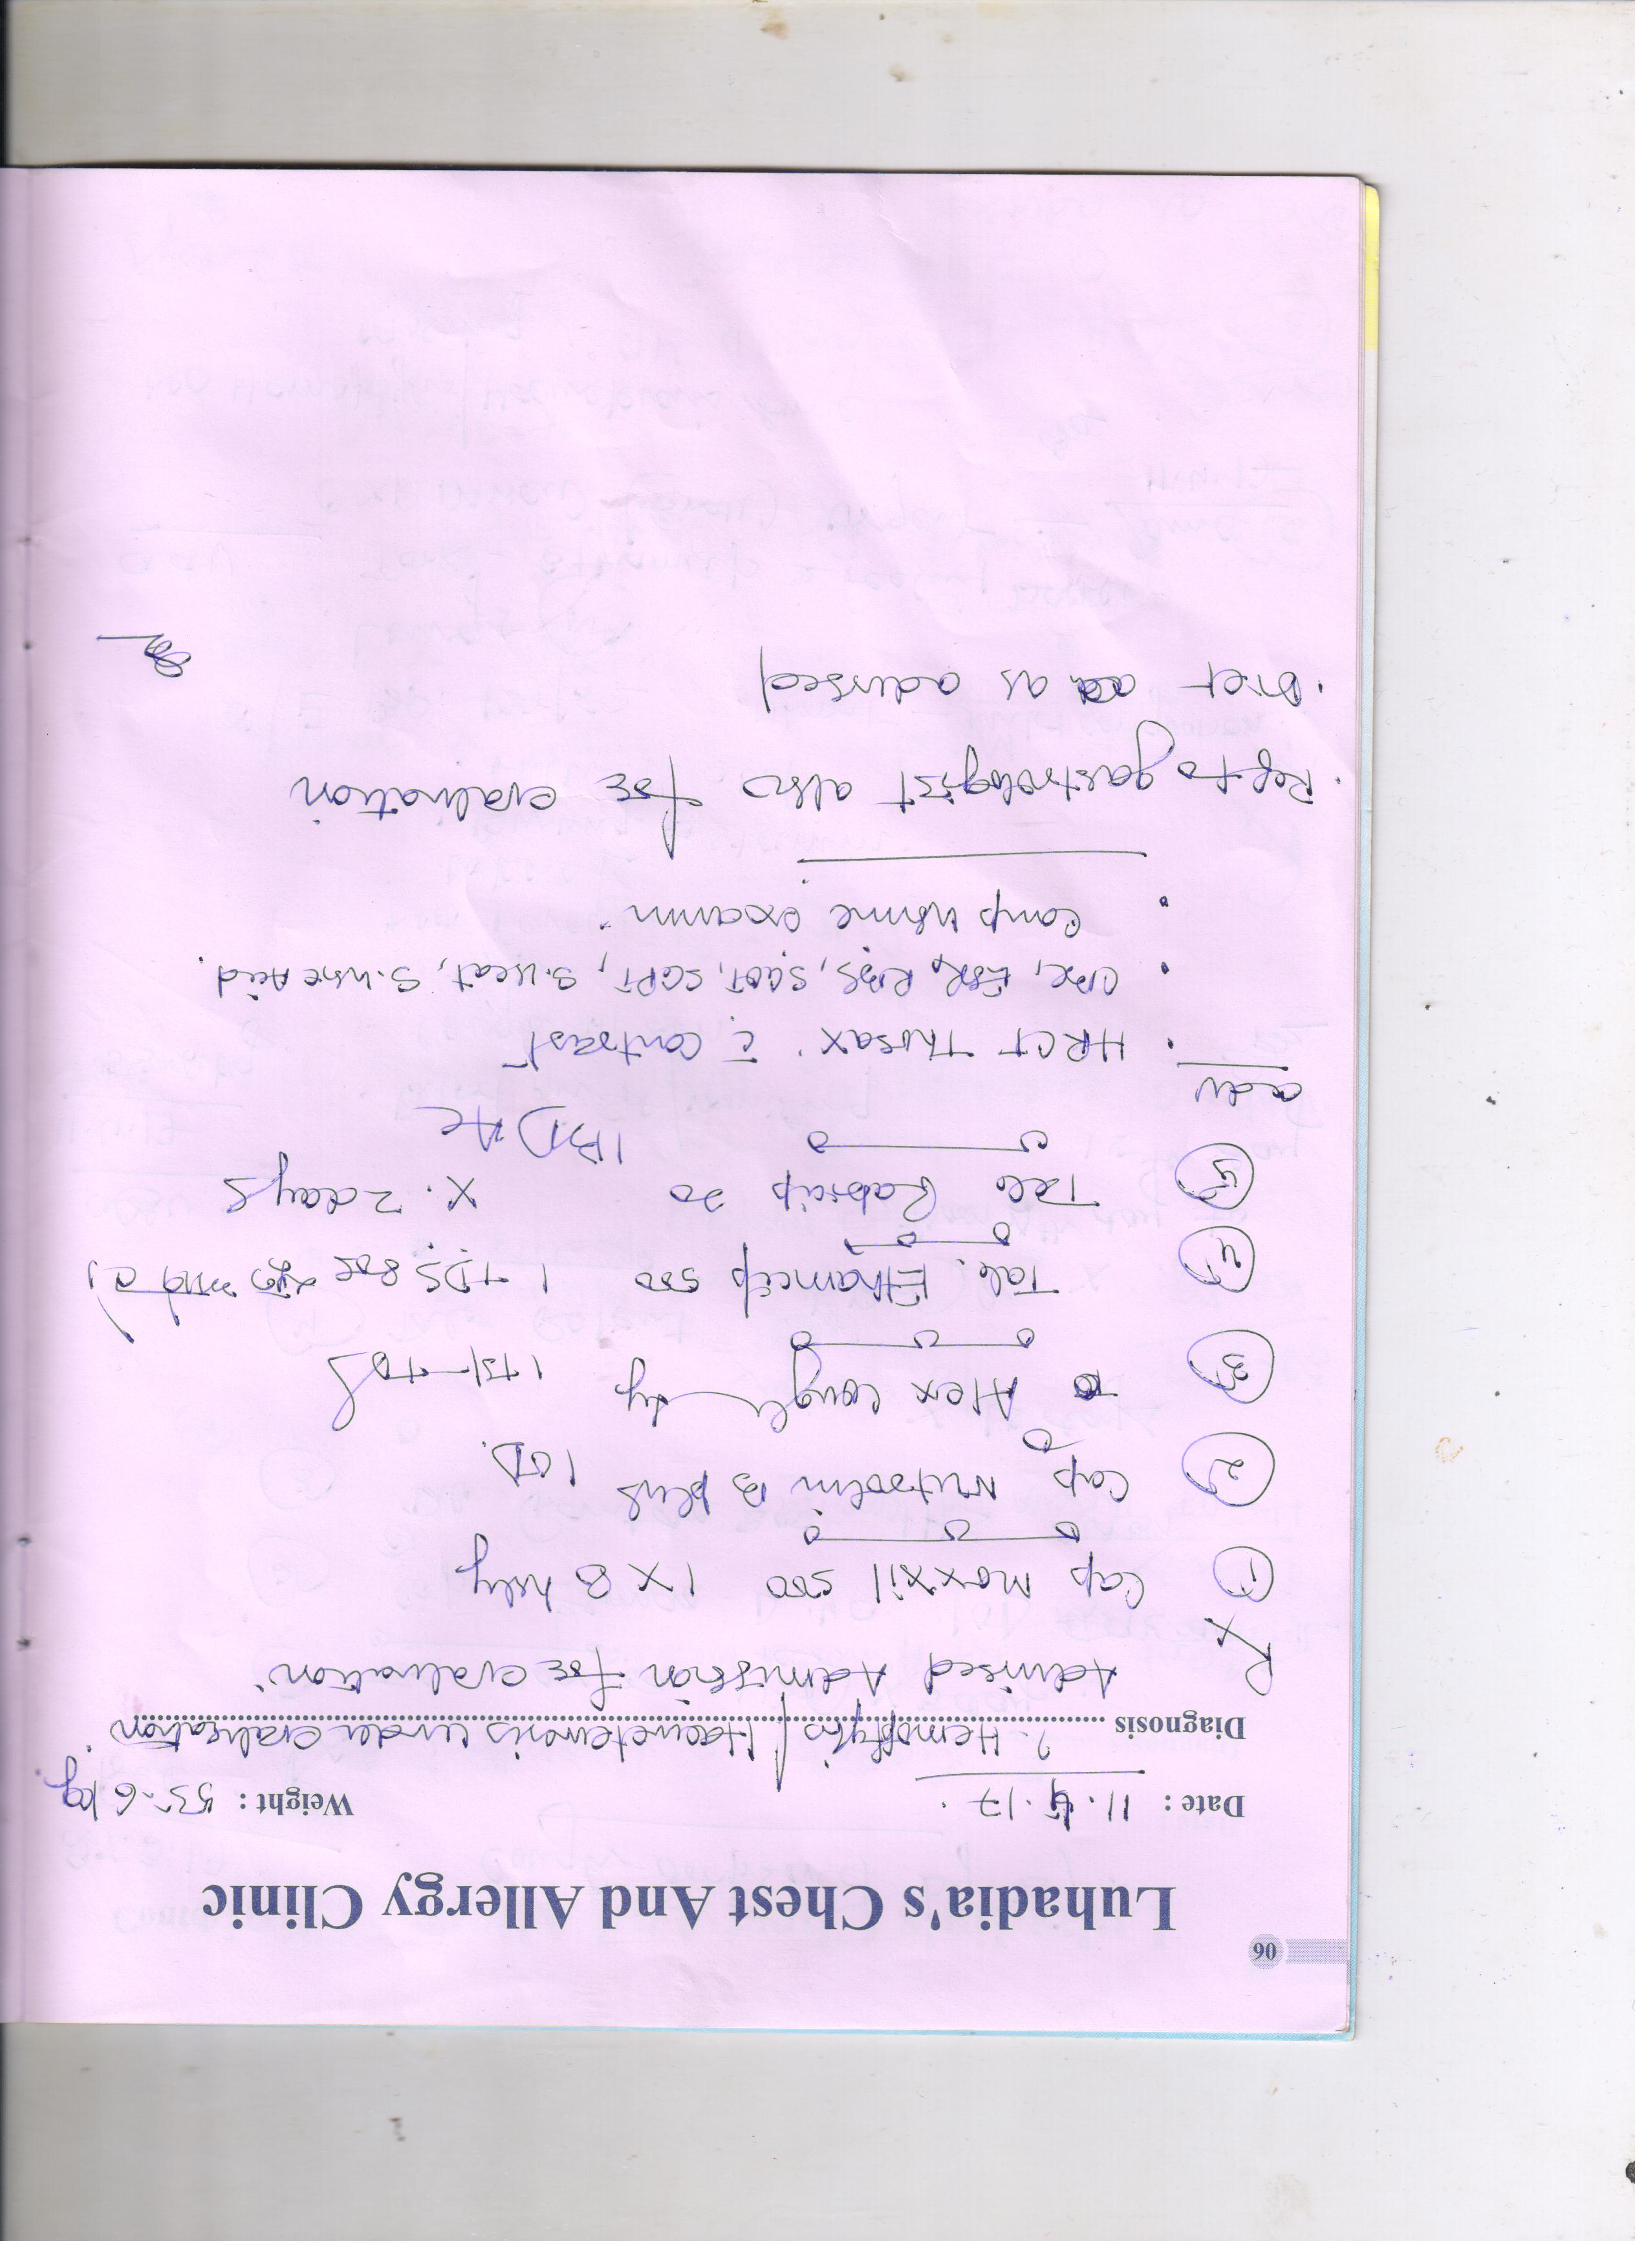 06
Luhadia's Chest And Allergy Clinic
Date : 11.4.17. Weight : 55.6 kg
Diagnosis ? Hemoptysis / Haemetemesis under evaluation
Advised Admission for evaluation.
Rx
1 Cap Moxxil 500 1 x 8 hrly
2 Cap Nutrolin B plus 1 OD.
3 Alex Cough 1 TDS
4 Tab. Ethamcip 500 1 TDS
5 Tab Rabicip 20 x. 2 days
1 BD AC
adv
. HRCT Thorax c̄ contrast
. CBC, ESR, RBS, SGOT, SGPT, S.Ucat, S.Uric Acid.
. Comp Urine examn.
. Ref to gastrologist also for evaluation
. Diet as advised